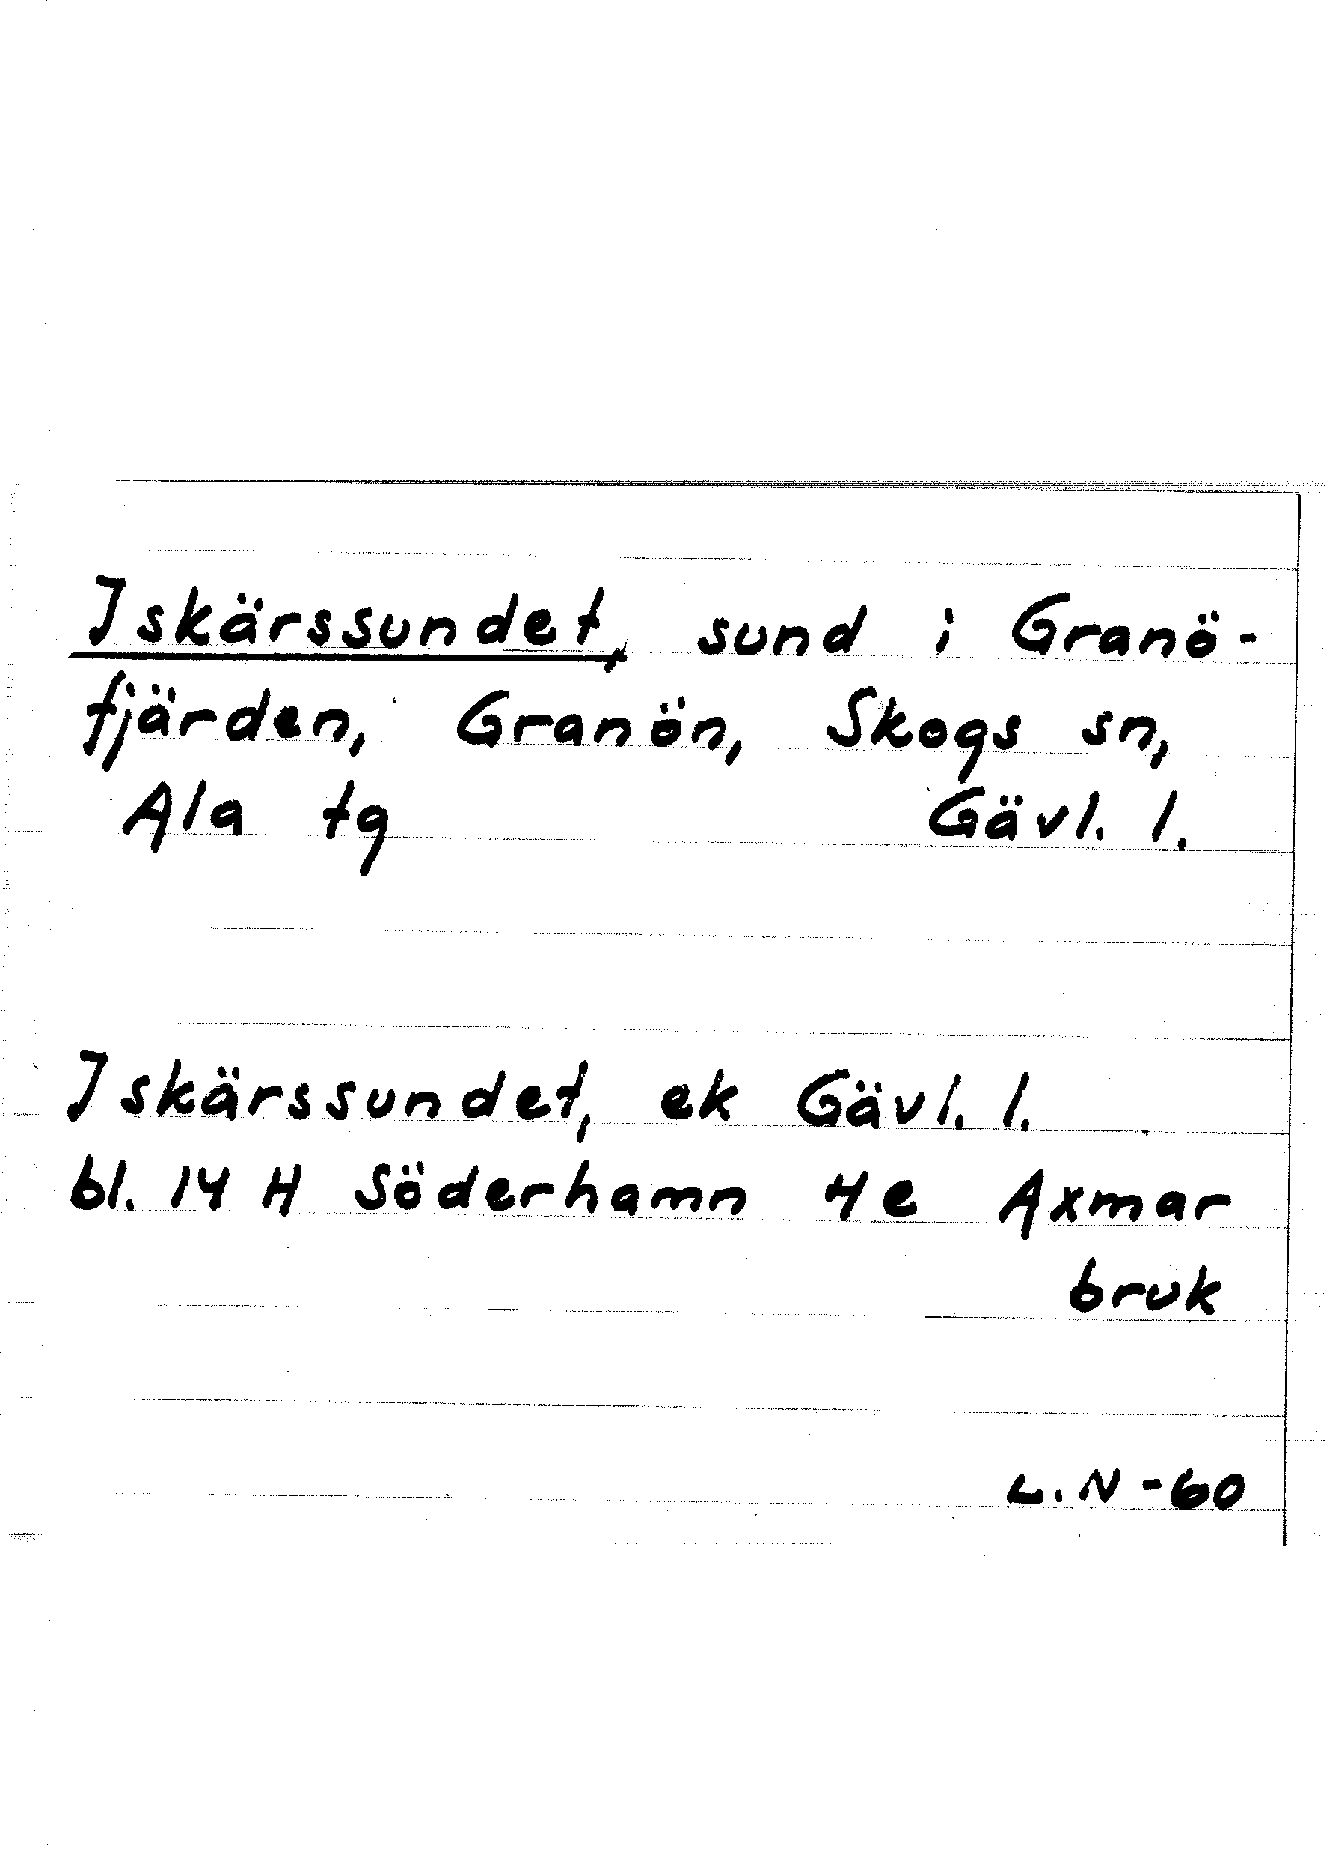 Iskärssundet, sund i Granö-
fjärden, Granön, Skogs sn,
Ala tg Gävl. l.
Iskärssundet, ek Gävl. l.
bl. 14 H Söderhamn 4e Axmar
bruk
L.N -60